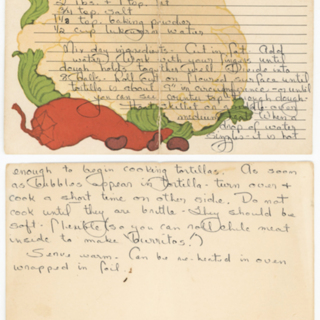 2 tbs. + 1 tsp. fat
3/4 tsp. salt
1 1/2 tsp. baking powder
1/2 cup lukewarm water
Mix dry ingredients. Cut in fat. Add
water, & work with your fingers until
dough holds together like pie. Divide into
8 balls. Roll out on floured surface until
tortilla is about 7" in circumference or until
you can see counter top through dough.
skillet over
medium When a
drop of water
sizzles it is hot
enough to begin cooking tortillas. As soon
as bubbles appear in tortilla turn over &
cook a short time on other side. Do not
cook until they are brittle. They should be
soft & flexible (so you can roll chile meat
inside to make burritos!)
Serve warm. Can be re-heated in oven
wrapped in foil.